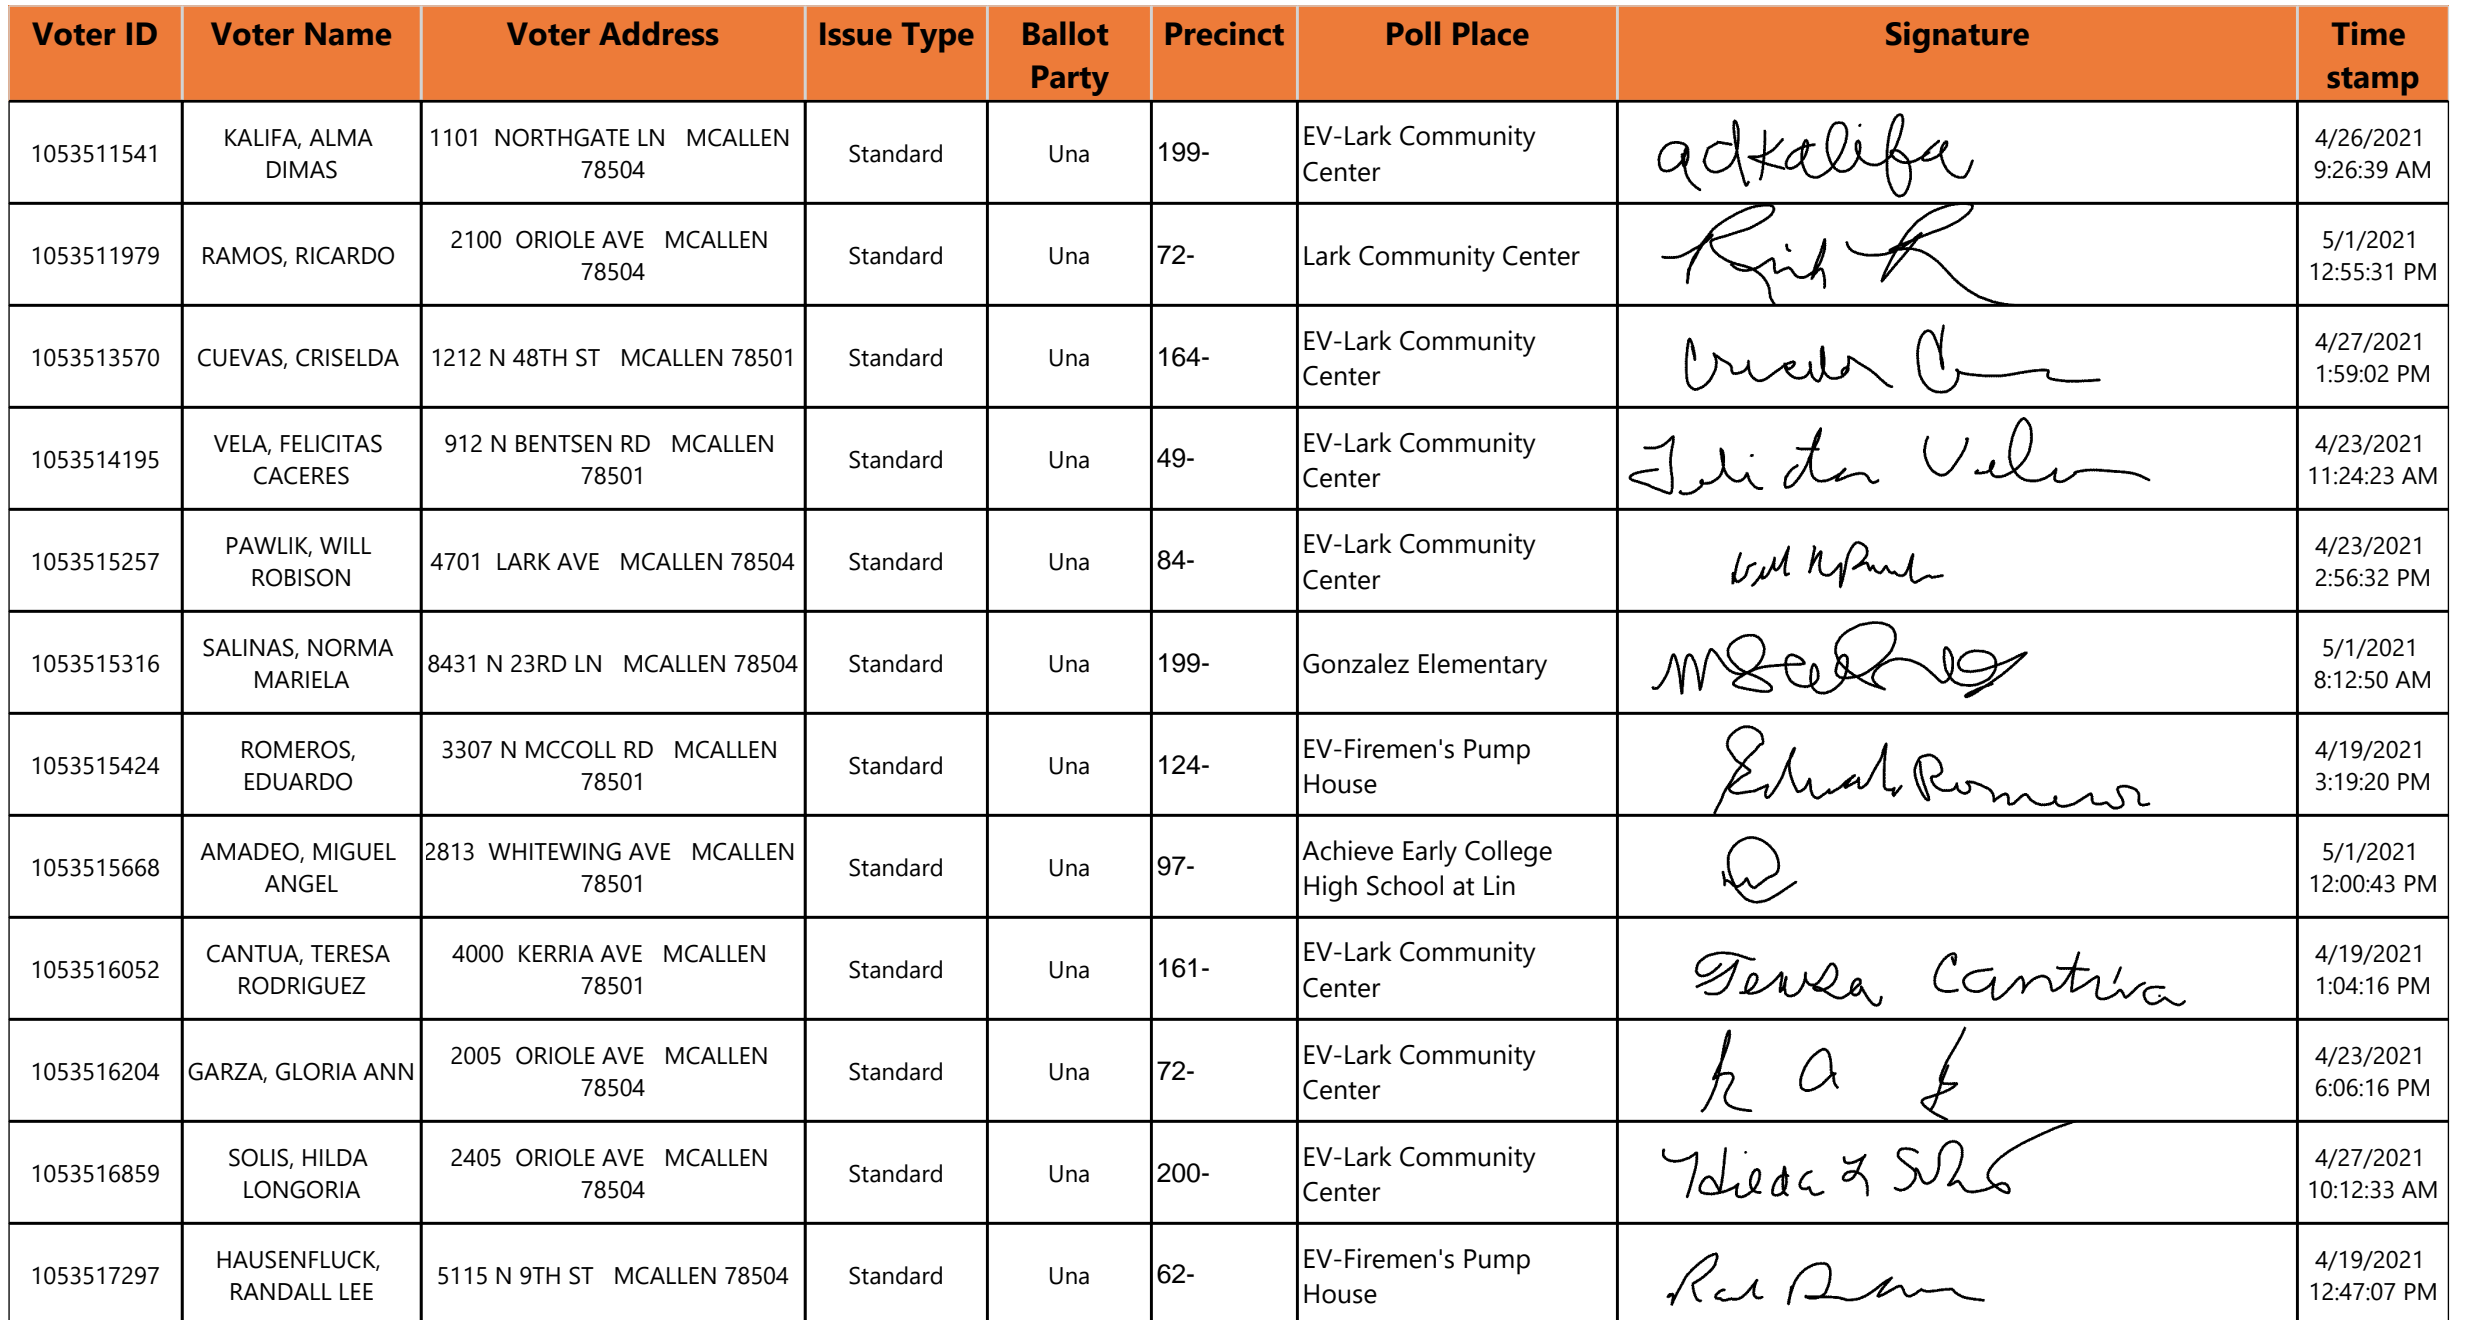 Voter ID Voter Name Voter Address Issue Type Ballot Party Precinct Poll Place Signature Time stamp
1053511541 KALIFA, ALMA DIMAS 1101 NORTHGATE LN MCALLEN 78504 Standard Una 199- EV-Lark Community Center adkalifa 4/26/2021 9:26:39 AM
1053511979 RAMOS, RICARDO 2100 ORIOLE AVE MCALLEN 78504 Standard Una 72- Lark Community Center 5/1/2021 12:55:31 PM
1053513570 CUEVAS, CRISELDA 1212 N 48TH ST MCALLEN 78501 Standard Una 164- EV-Lark Community Center 4/27/2021 1:59:02 PM
1053514195 VELA, FELICITAS CACERES 912 N BENTSEN RD MCALLEN 78501 Standard Una 49- EV-Lark Community Center 4/23/2021 11:24:23 AM
1053515257 PAWLIK, WILL ROBISON 4701 LARK AVE MCALLEN 78504 Standard Una 84- EV-Lark Community Center 4/23/2021 2:56:32 PM
1053515316 SALINAS, NORMA MARIELA 8431 N 23RD LN MCALLEN 78504 Standard Una 199- Gonzalez Elementary 5/1/2021 8:12:50 AM
1053515424 ROMEROS, EDUARDO 3307 N MCCOLL RD MCALLEN 78501 Standard Una 124- EV-Firemen's Pump House 4/19/2021 3:19:20 PM
1053515668 AMADEO, MIGUEL ANGEL 2813 WHITEWING AVE MCALLEN 78501 Standard Una 97- Achieve Early College High School at Lin 5/1/2021 12:00:43 PM
1053516052 CANTUA, TERESA RODRIGUEZ 4000 KERRIA AVE MCALLEN 78501 Standard Una 161- EV-Lark Community Center Teresa Cantúa 4/19/2021 1:04:16 PM
1053516204 GARZA, GLORIA ANN 2005 ORIOLE AVE MCALLEN 78504 Standard Una 72- EV-Lark Community Center 4/23/2021 6:06:16 PM
1053516859 SOLIS, HILDA LONGORIA 2405 ORIOLE AVE MCALLEN 78504 Standard Una 200- EV-Lark Community Center Hilda L Solis 4/27/2021 10:12:33 AM
1053517297 HAUSENFLUCK, RANDALL LEE 5115 N 9TH ST MCALLEN 78504 Standard Una 62- EV-Firemen's Pump House 4/19/2021 12:47:07 PM